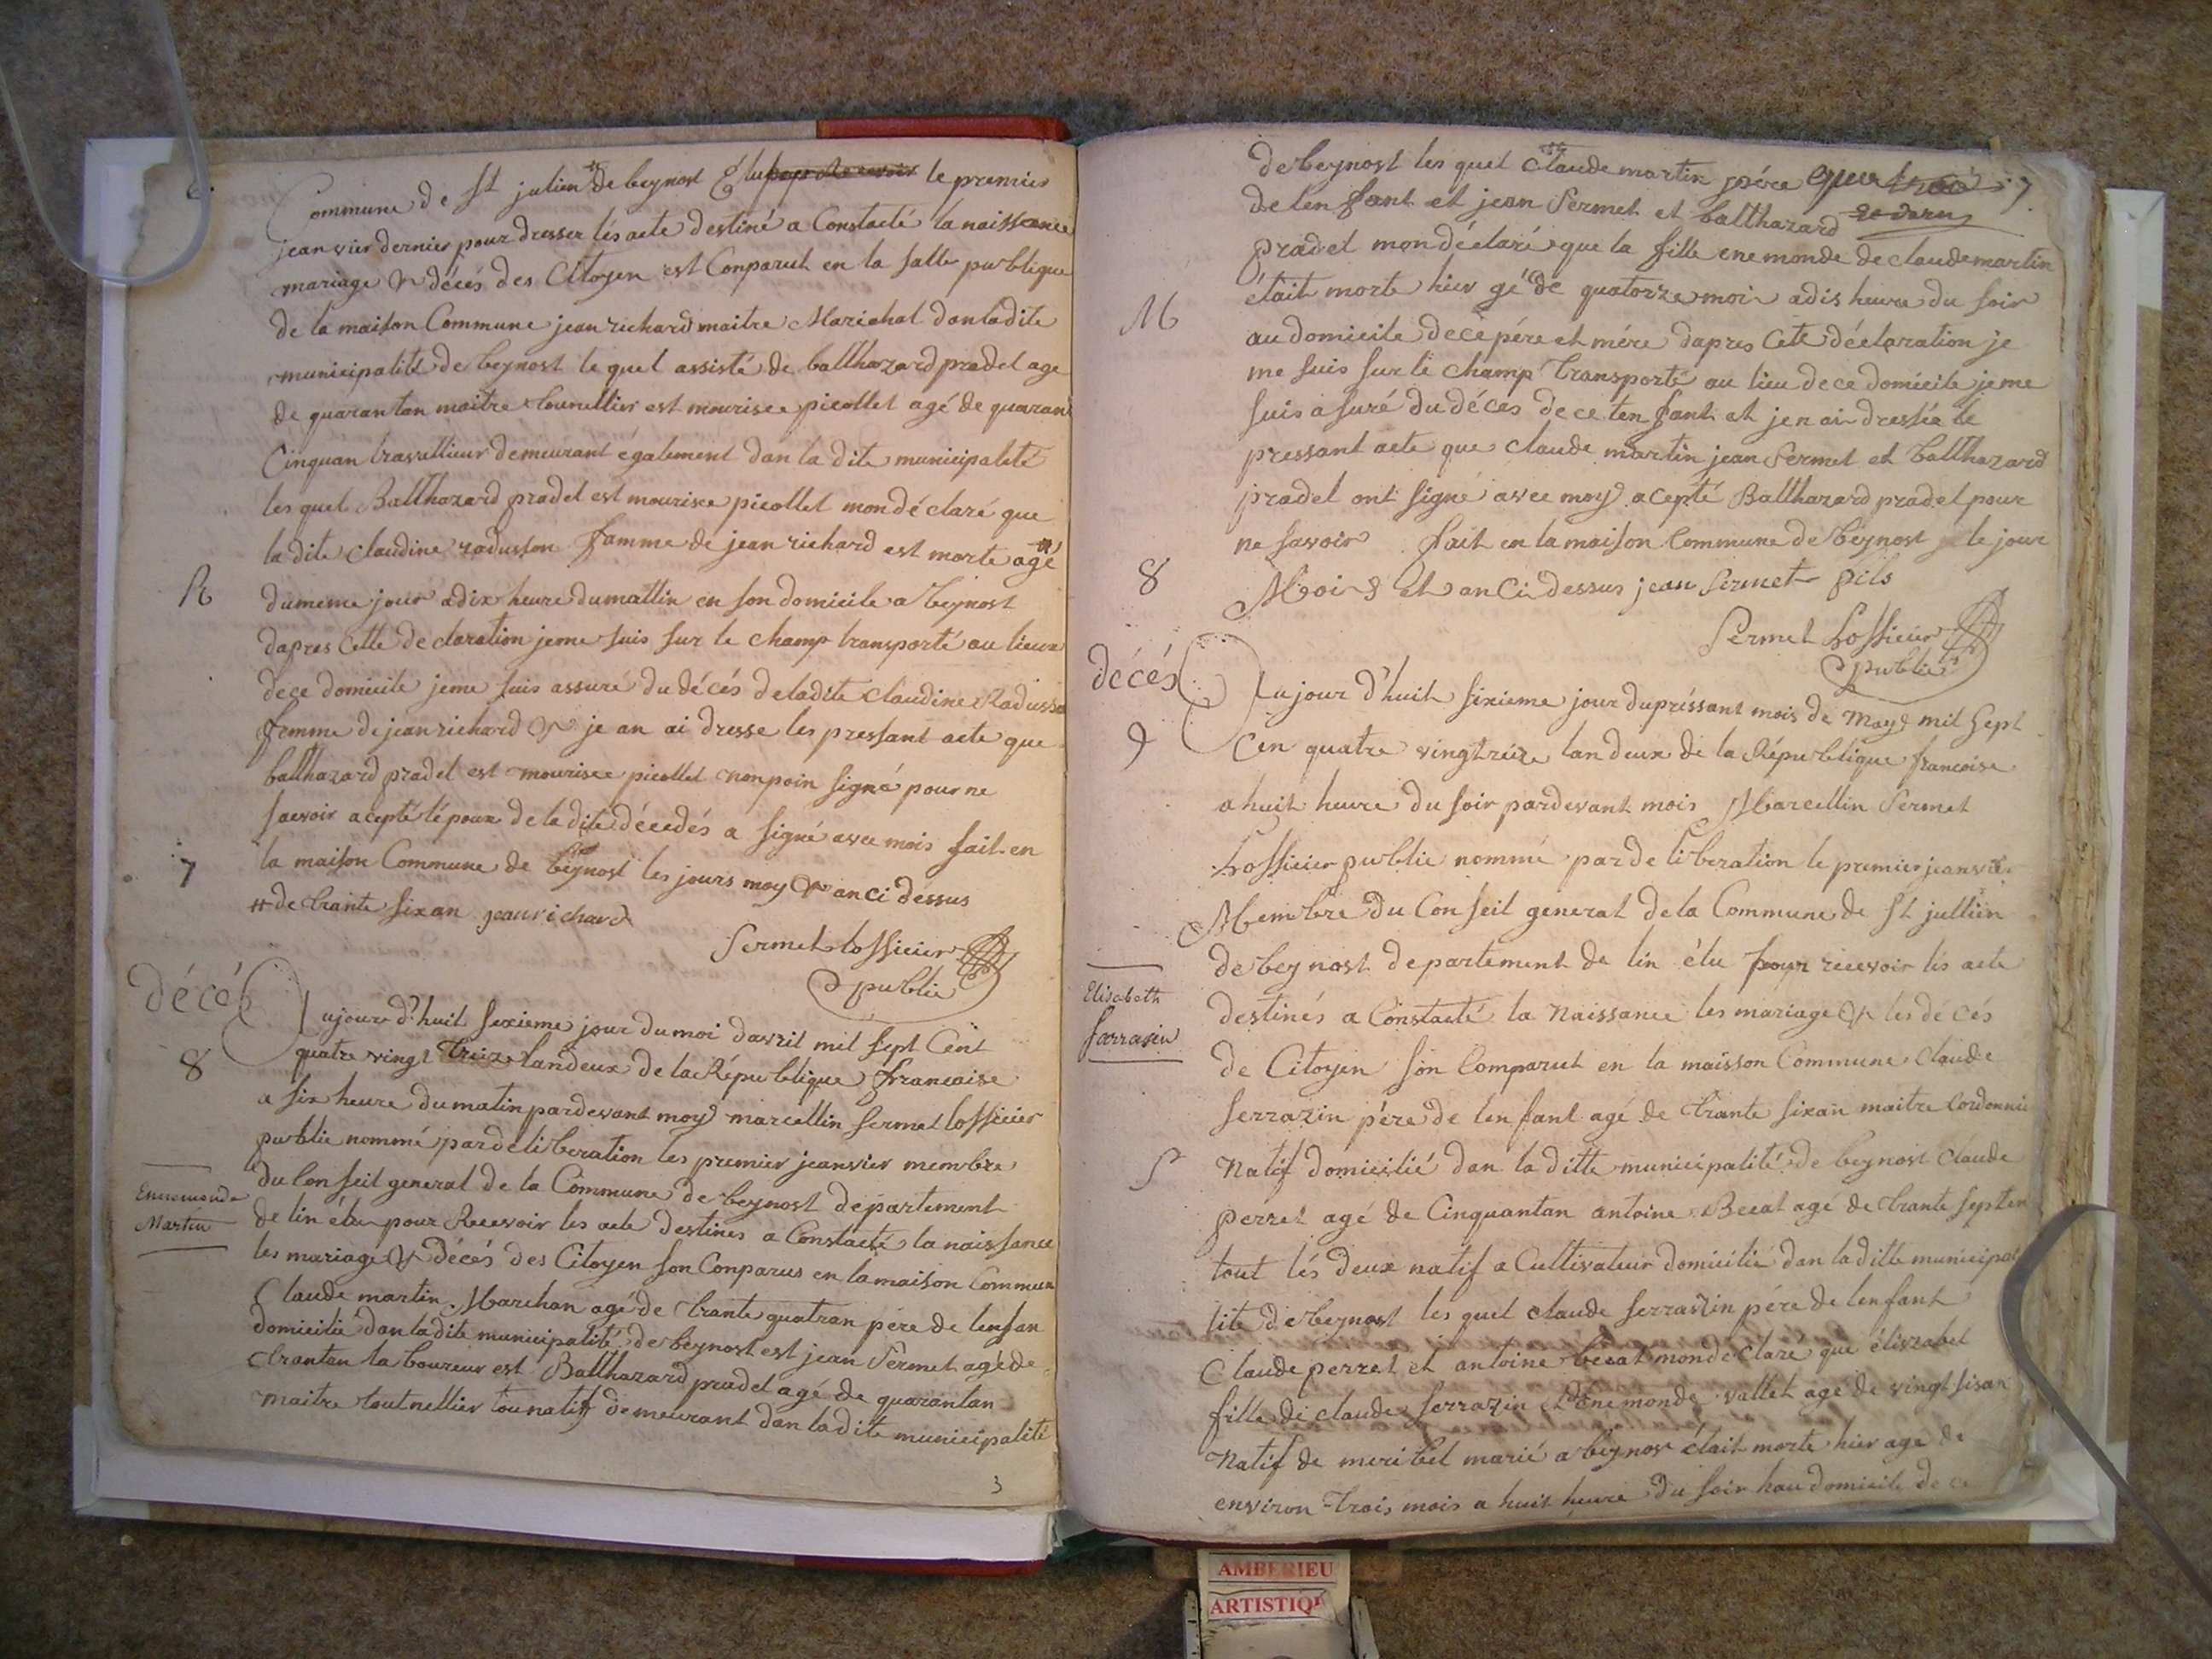 6.
Commune de St julien # de beynost Élu pour Recevoir le premier
jeanvier dernier pour dresser les acte destiné a Constaté la naissance
mariage & décés des Citoyen est Conparut en la salle publique
de la maison Commune jean richard maitre Marichal dan la dite
municipalité de beynost le quel assisté de balthazard pradel age
de quarantan maitre tounellier est mourisce picollet agé de quaran
Cinquan travallieur demeurant également dan la dite municipalité
les quel Balthazard pradel est mourisce picollet mon déclaré que
la dite claudine radusson famme de jean richard est morte agé #
R
du meme jour a dix heure du mattin en son domicile a beynost
dapres Cette declaration je me suis sur le champ transporté au lieux
de ce domicile je me suis assuré du décés de la dite Claudine Radusso
femme de jean richard & je an ai dresse les pressant acte que
balthazard pradel est mourisce picollet non poin signé pour ne
saevoir acepté lépoux de la dite décedés a signé avec mois fait en
7
la maison Commune de beynost les jours moy & an ci dessus
# de trante six an jean richard
Sermet lofficier
public
décé
Aujourd'huit sixieme jour du moi davril mil sept Cent
8
quatre vingt treize lan deux de la République francaise
a six heure du matin pardevant moy marcellin sermet lofficier
public nommé par deliberation les premier jeanvier membre
du Conseil general de la Commune de beynost departement
Ennemonde
Martin
de lin élu pour Recevoir les acte destines a Constacté la naissance
les mariage & décés des Citoyen son Conparus en la maison Commun
Claude martin Marchan agé de trante quatran pére de lenfan
domicilié dan la dite municipalité de beynost est jean Sermet agé de
trantan laboureur est Balthazard pradel agé de quarantan
maitre toutnellier tou natif demeurant dan la dite municipalité
3
de beynost les quel Claude martin pére 7
de lenfant et jean Sermet et balthazard
pradel mon déclaré que la fille enemonde de claude martin
M
était morte hier gé de quatorze moi a dis heure du soir
au domicile de ce pére et mére dapres Cete déclaration je
me suis sur le champ transporté au lieu de ce domicile je me
suis asuré du déces de ce tenfant et jen ai dressée le
pressant acte que claude martin jean sermet et balthazard
pradel ont signé avec moy acepté Balthazard pradel pour
ne savoir fait en la maison Commune de beynost le jour
8
Mois et an Ci dessus jean sermet fils
Sermet Lofficier
public
décés
Aujour d'huit sixieme jour du préssant mois de may mil sept
9
Cen quatre vingtreize lan deux de la République francoise
a huit heure du soir pardevant mois Marcellin Sermet
Lofficier public nommé par deliberation le premier jeanvie
Membre du Conseil general de la Commune de St jullien
de beynost departement de lin élu pour recevoir les acte
Elisabeth
Sarrasin
destinés a Constacté la Naissance les mariage & les décés
de Citoyen son Comparut en la maisson Commune Claude
serrazin pére de lenfant agé de trante sixan maitre Cordonnie
S
Natif domicilié dan la ditte municipalité de beynost Claude
perret agé de Cinquantan antoine Becat agé de trante septen
tout les deux natif a Cultivateur domicilié dan la ditte municipa
lité de beynost les quel claude serrazin pére de lenfant
Claude perret et antoine becat mon declaré que élizabel
fille de claude serrazin & Enemonde vallet age de vingt sisan
Natif de meribel marié a beynos était morte hier age de
environ trois mois a huit heure du soir hau domicile de ce
AMBERIEU
ARTISTIQ